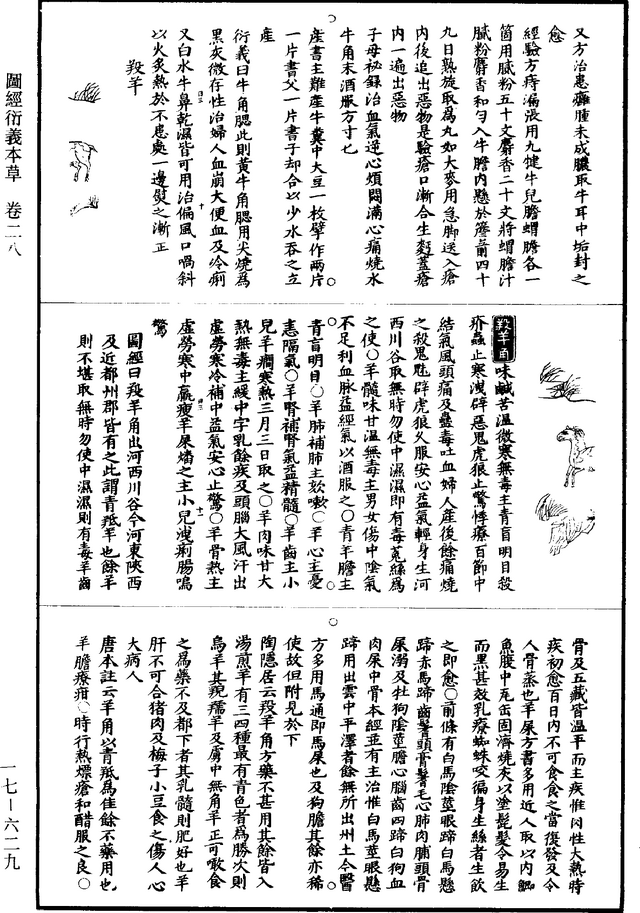 圖經衍義本草 卷二八
又方治患癰腫未成膿取牛耳中垢封之
愈
經驗方痔漏張用九犍牛兒膽蝟膽各一
箇用膩粉五十文麝香二十文將蝟膽汁
膩粉麝香和勻入牛膽內懸於簷前四十
九日熟旋取為丸如大麥用急脚送入瘡
內後追出惡物是驗瘡口漸合生麪蓋瘡
內一遍出惡物
子母祕錄治血氣逆心煩悶滿心痛燒水
牛角末酒服方寸匕
產書主難產牛糞中大豆一枚擘作兩片
一片書父一片書子却合以少水吞之立
產
衍義曰牛角䚡此則黃牛角䚡用尖燒為
黑灰微存性治婦人血崩大便血及冷痢
又白水牛鼻乾濕皆可用治偏風口喎斜
以火炙熱於不患處一邊熨之漸正
羖羊
羖羊角味鹹苦溫微寒無毒主青盲明目殺
疥蟲止寒洩辟惡鬼虎狼止驚悸療百節中
結氣風頭痛及蠱毒吐血婦人產後餘痛燒
之殺鬼魅辟虎狼久服安心益氣輕身生河
西川谷取無時勿使中濕濕即有毒菟絲為
之使○羊髓味甘溫無毒主男女傷中陰氣
不足利血脉益經氣以酒服之○青羊膽主
青盲明目○羊肺補肺主欬嗽○羊心主憂
恚隔氣○羊腎補腎氣益精髓○羊齒主小
兒羊癇寒熱三月三日取之○羊肉味甘大
熱無毒主緩中字乳餘疾及頭腦大風汗出
虛勞寒冷補中益氣安心止驚○羊骨熱主
虛勞寒中羸瘦羊屎燔之主小兒洩痢腸鳴
驚
圖經曰羖羊角出河西川谷今河東陝西
及近都州郡皆有之此謂青羝羊也餘羊
則不堪取無時勿使中濕濕則有毒羊齒
骨及五藏皆溫平而主疾惟肉性大熱時
疾初愈百日內不可食食之當復發及令
人骨蒸也羊屎方書多用近人取以內鯽
魚腹中瓦缶固濟燒灰以塗髭髮令易生
而黑甚效乳療蜘蛛咬徧身生絲者生飲
之即愈○前條有白馬陰莖眼蹄白馬懸
蹄赤馬蹄齒鬐頭骨鬐毛心肺肉脯頭骨
屎溺及牡狗陰莖膽心腦齒四蹄白狗血
肉屎中骨本經並有主治惟白馬莖眼懸
蹄用出雲中平澤者餘無所出州土今醫
方多用馬通即馬屎也及狗膽其餘亦稀
使故但附見於下
陶隱居云羖羊角方藥不甚用其餘皆入
湯煎羊有三四種最有青色者為勝次則
烏羊其䍽䍲羊及虜中無角羊正可噉食
之為藥不及都下者其乳髓則肥好也羊
肝不可合猪肉及梅子小豆食之傷人心
大病人
唐本註云羊角以青羝為佳餘不藥用也
羊膽療疳○時行熱熛瘡和醋服之良○
一七—六二九